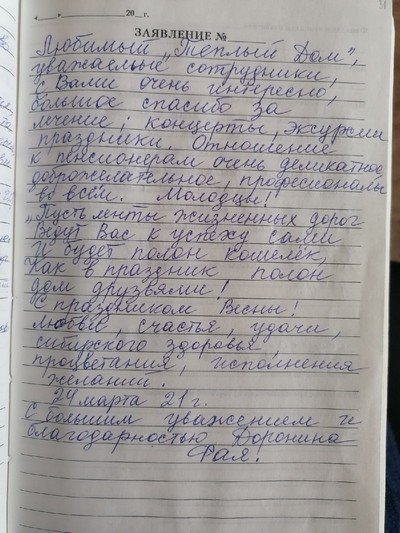 «___»________20__г.
ЗАЯВЛЕНИЕ №
Любимый „Теплый Дом",
уважаемые сотрудники,
с Вами очень интересно,
большое спасибо за
лечение, концерты, экскурсии
праздники. Отношение
к пенсионерам очень деликатное,
доброжелательное, професионалы
во всём. Молодцы!
„Пусть ленты жизненных дорог
Ведут Вас к успеху сами
И будет полон кошелек,
Как в праздник полон
дом друзьями!
С праздником Весны!
Любви, счастья, удачи,
сибирского здоровья,
процветания, исполнения
желаний.
24 марта 21 г.
С большим уважением и
благодарностью Доронина
Фая.